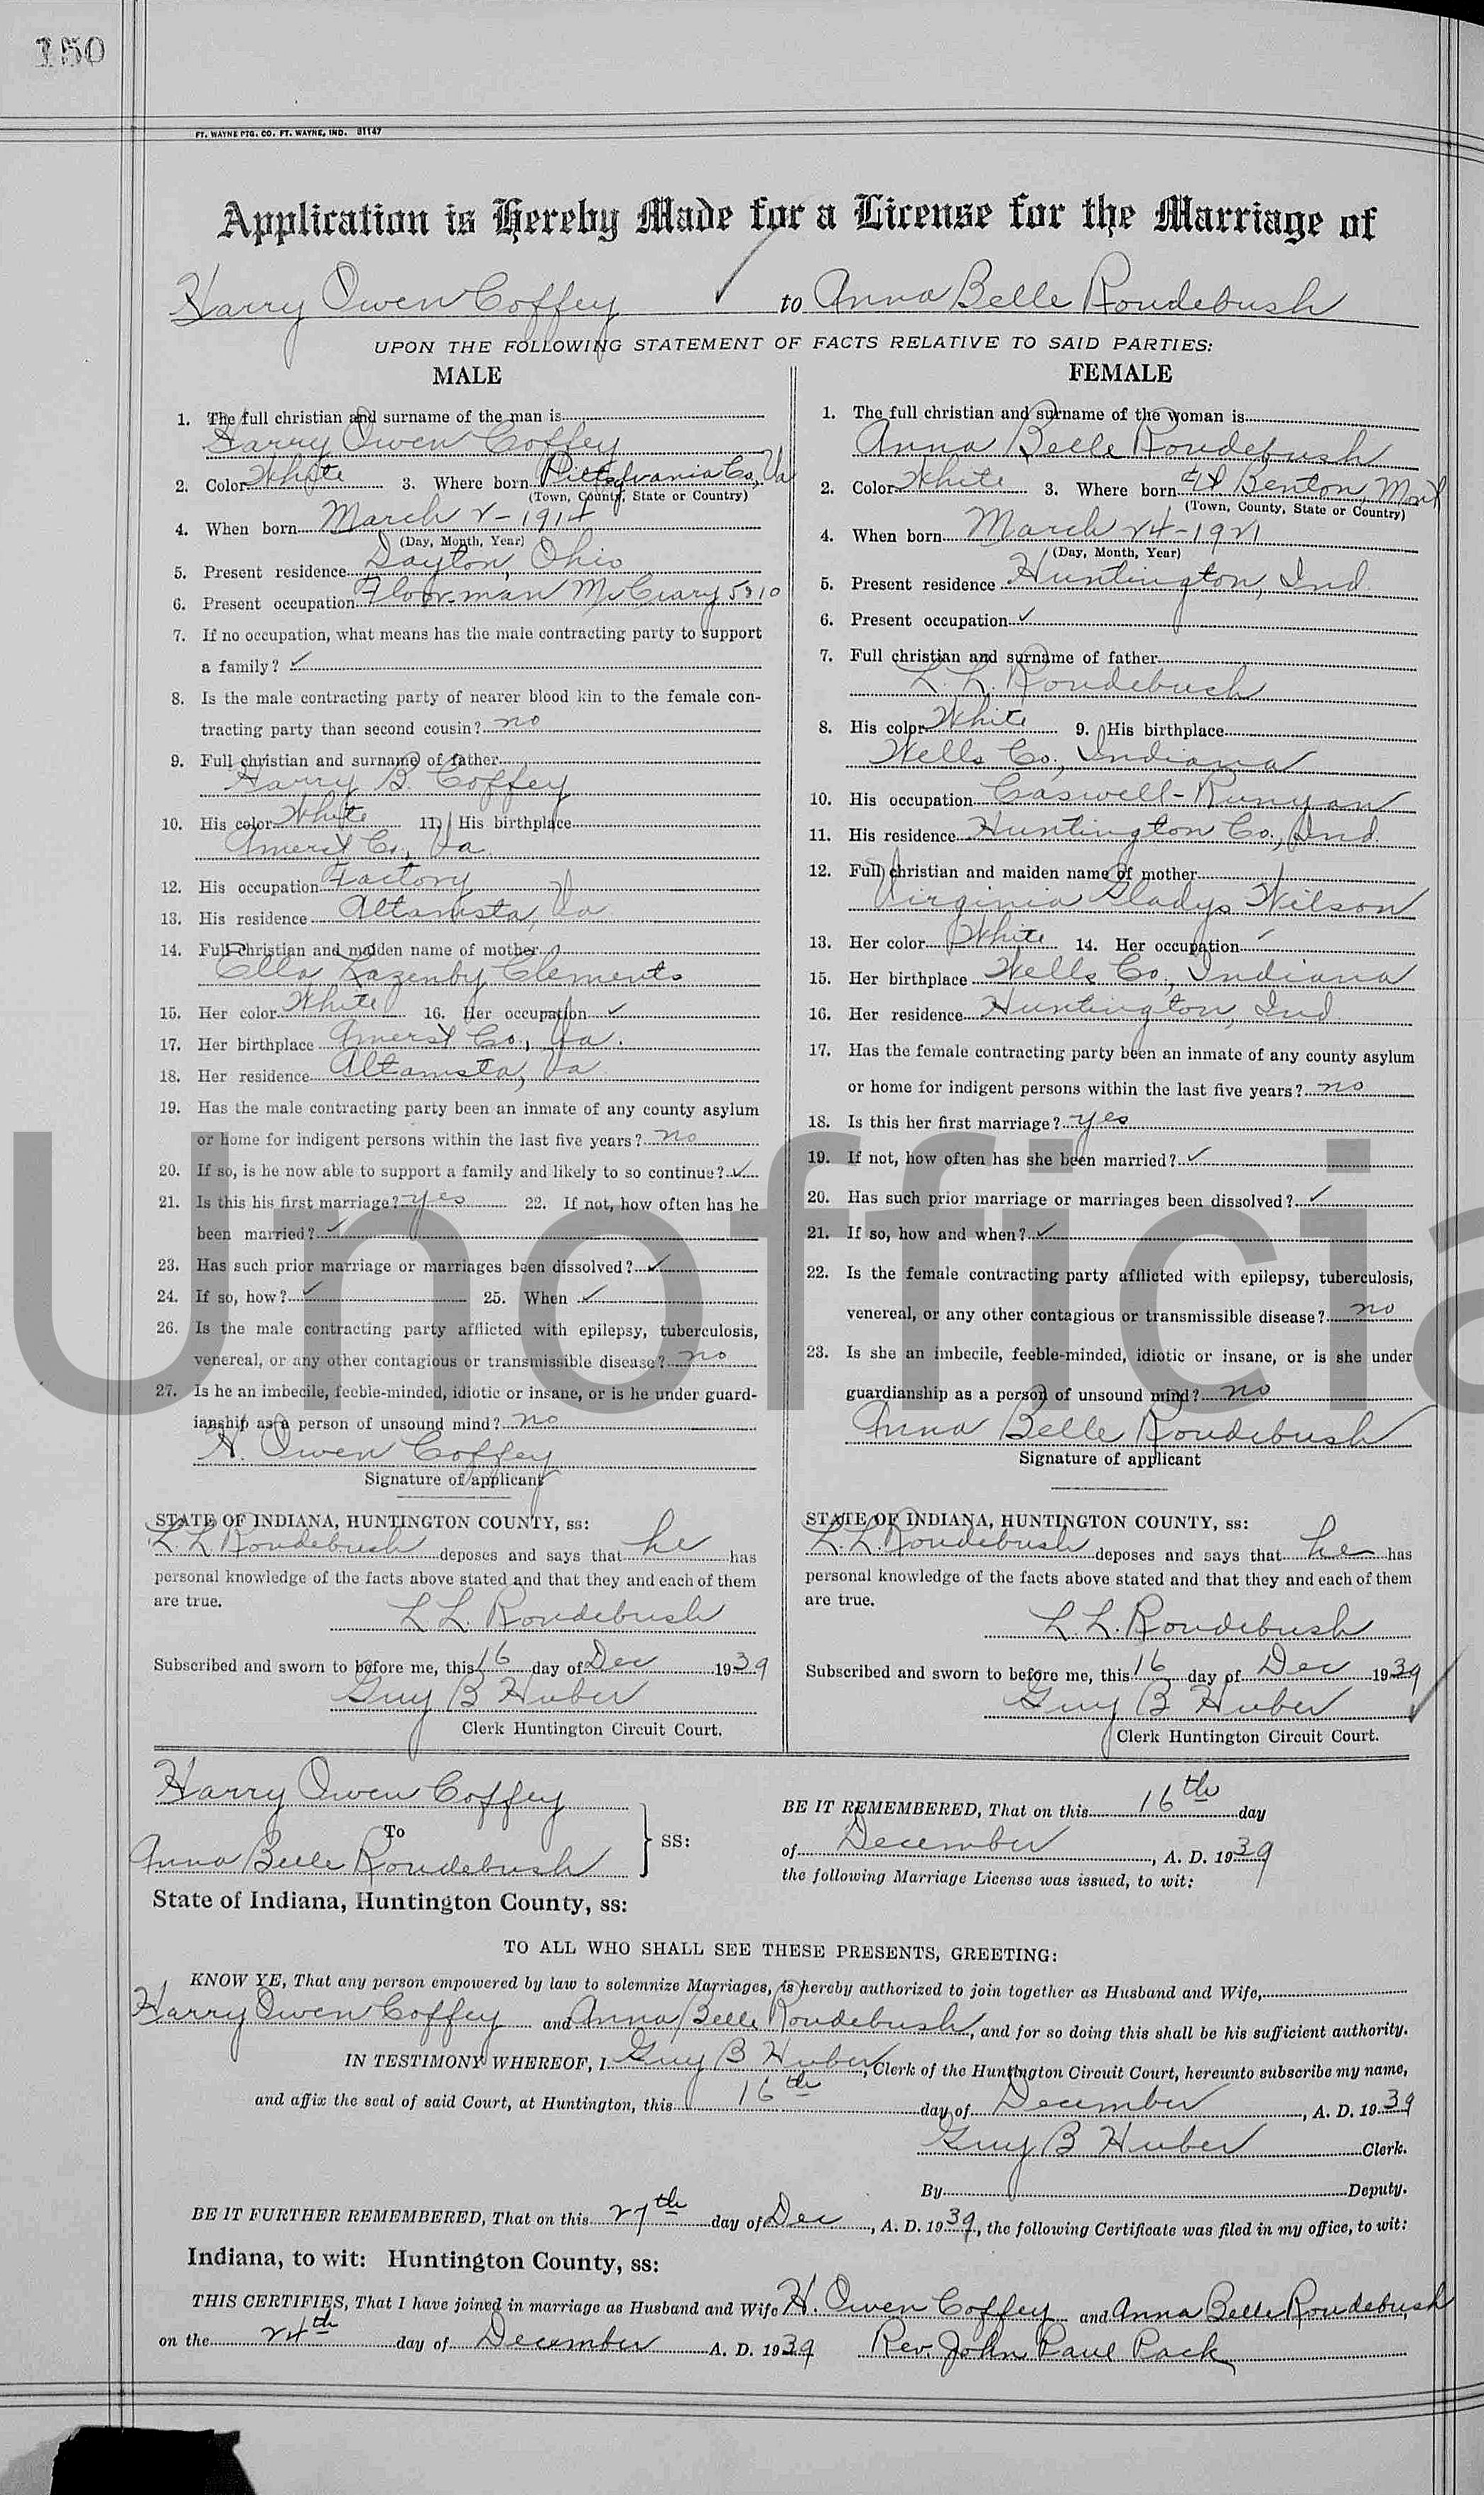 150
FT. WAYNE PTG. CO. FT. WAYNE, IND. 31147
Application is Hereby Made for a License for the Marriage of
Harry Owen Coffey to Anna Belle Roudebush
UPON THE FOLLOWING STATEMENT OF FACTS RELATIVE TO SAID PARTIES:
MALE
1. The full christian and surname of the man is
Harry Owen Coffey
2. Color White 3. Where born Pittsylvania Co, Va
(Town, County, State or Country)
4. When born March 2-1914
(Day, Month, Year)
5. Present residence Dayton, Ohio
6. Present occupation Floor-man McCrary 5&10
7. If no occupation, what means has the male contracting party to support
a family? ✓
8. Is the male contracting party of nearer blood kin to the female con-
tracting party than second cousin? no
9. Full christian and surname of father
Harry B. Coffey
10. His color White 11. His birthplace
Amerst Co., Va.
12. His occupation Factory
13. His residence Altavista, Va
14. Full christian and maiden name of mother
Ella Lazenby Clements
15. Her color White 16. Her occupation ✓
17. Her birthplace Amerst Co., Va.
18. Her residence Altavista, Va
19. Has the male contracting party been an inmate of any county asylum
or home for indigent persons within the last five years? no
20. If so, is he now able to support a family and likely to so continue? ✓
21. Is this his first marriage? yes 22. If not, how often has he
been married? ✓
23. Has such prior marriage or marriages been dissolved? ✓
24. If so, how? ✓ 25. When ✓
26. Is the male contracting party afflicted with epilepsy, tuberculosis,
venereal, or any other contagious or transmissible disease? no
27. Is he an imbecile, feeble-minded, idiotic or insane, or is he under guard-
ianship as a person of unsound mind? no
H. Owen Coffey
Signature of applicant
STATE OF INDIANA, HUNTINGTON COUNTY, ss:
L. L. Roudebush deposes and says that he has
personal knowledge of the facts above stated and that they and each of them
are true.
L. L. Roudebush
Subscribed and sworn to before me, this 16 day of Dec 1939
Guy B Huber
Clerk Huntington Circuit Court.
FEMALE
1. The full christian and surname of the woman is
Anna Belle Roudebush
2. Color White 3. Where born Ft Benton, Mont
(Town, County, State or Country)
4. When born March 24-1921
(Day, Month, Year)
5. Present residence Huntington, Ind.
6. Present occupation ✓
7. Full christian and surname of father
L. L. Roudebush
8. His color White 9. His birthplace
Wells Co., Indiana
10. His occupation Caswell-Runyan
11. His residence Huntington Co., Ind.
12. Full christian and maiden name of mother
Virginia Gladys Wilson
13. Her color White 14. Her occupation ✓
15. Her birthplace Wells Co., Indiana
16. Her residence Huntington, Ind
17. Has the female contracting party been an inmate of any county asylum
or home for indigent persons within the last five years? no
18. Is this her first marriage? yes
19. If not, how often has she been married? ✓
20. Has such prior marriage or marriages been dissolved? ✓
21. If so, how and when? ✓
22. Is the female contracting party afflicted with epilepsy, tuberculosis,
venereal, or any other contagious or transmissible disease? no
23. Is she an imbecile, feeble-minded, idiotic or insane, or is she under
guardianship as a person of unsound mind? no
Anna Belle Roudebush
Signature of applicant
STATE OF INDIANA, HUNTINGTON COUNTY, ss:
L. L. Roudebush deposes and says that he has
personal knowledge of the facts above stated and that they and each of them
are true.
L. L. Roudebush
Subscribed and sworn to before me, this 16 day of Dec 1939
Guy B Huber
Clerk Huntington Circuit Court.
Unoficia
Harry Owen Coffey
To
Anna Belle Roudebush
} ss:
State of Indiana, Huntington County, ss:
BE IT REMEMBERED, That on this 16th day
of December, A. D. 1939
the following Marriage License was issued, to wit:
TO ALL WHO SHALL SEE THESE PRESENTS, GREETING:
KNOW YE, That any person empowered by law to solemnize Marriages, is hereby authorized to join together as Husband and Wife,
Harry Owen Coffey and Anna Belle Roudebush, and for so doing this shall be his sufficient authority.
IN TESTIMONY WHEREOF, I Guy B Huber, Clerk of the Huntington Circuit Court, hereunto subscribe my name,
and affix the seal of said Court, at Huntington, this 16th day of December, A. D. 1939
Guy B Huber Clerk.
By Deputy.
BE IT FURTHER REMEMBERED, That on this 27th day of Dec, A. D. 1939, the following Certificate was filed in my office, to wit:
Indiana, to wit: Huntington County, ss:
THIS CERTIFIES, That I have joined in marriage as Husband and Wife H. Owen Coffey and Anna Belle Roudebush
on the 24th day of December A. D. 1939 Rev. John Paul Pack